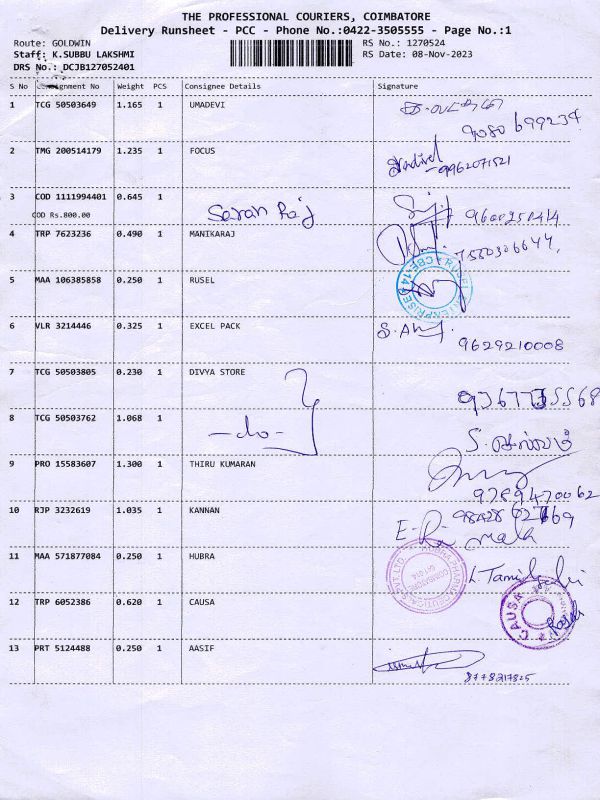 THE PROFESSIONAL COURIERS, COIMBATORE
Delivery Runsheet - PCC - Phone No.:0422-3505555 - Page No.:1
Route: GOLDWIN RS No.: 1270524
Staff: K.SUBBU LAKSHMI RS Date: 08-Nov-2023
DRS No.: DCJB127052401
S No Consignment No Weight PCS Consignee Details Signature
1 TCG 50503649 1.165 1 UMADEVI
9080 699234
2 TMG 200514179 1.235 1 FOCUS
9962071521
3 COD 1111994401 0.645 1 Saran Raj
COD Rs.800.00 9600250414
4 TRP 7623236 0.490 1 MANIKARAJ
7550306647.
5 MAA 106385858 0.250 1 RUSEL
6 VLR 3214446 0.325 1 EXCEL PACK
9629210008
7 TCG 50503805 0.230 1 DIVYA STORE
8 TCG 50503762 1.068 1 -do-
9 PRO 15583607 1.300 1 THIRU KUMARAN
9789470062
10 RJP 3232619 1.035 1 KANNAN
11 MAA 571877084 0.250 1 HUBRA
12 TRP 6052386 0.620 1 CAUSA
CAUSA
13 PRT 5124488 0.250 1 AASIF
8778217825